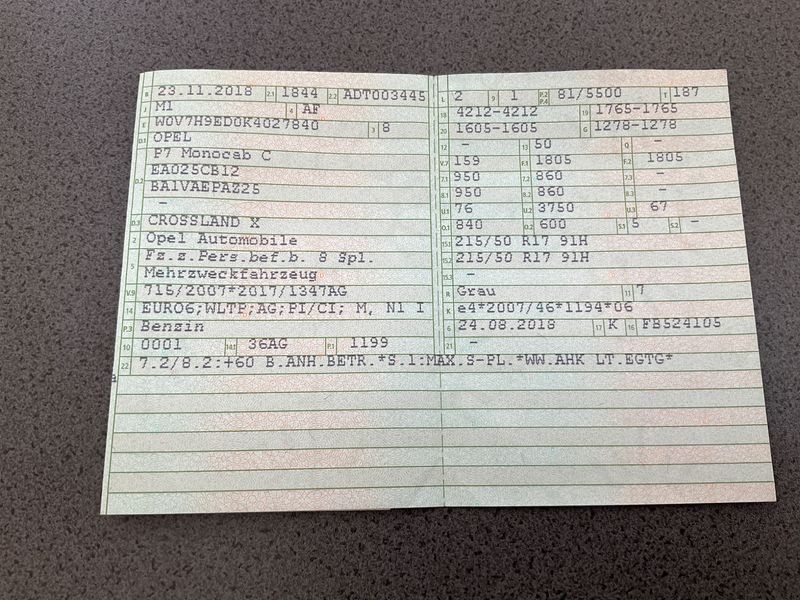 B 23.11.2018 2.1 1844 2.2 ADT003445
J M1 4 AF
E W0V7H9ED0K4027840 3 8
D.1 OPEL
P7 Monocab C
D.2 EA025CB12
BA1VAEPAZ25
-
D.3 CROSSLAND X
2 Opel Automobile
5 Fz.z.Pers.bef.b. 8 Spl.
Mehrzweckfahrzeug
V.9 715/2007*2017/1347AG
14 EURO6;WLTP;AG;PI/CI; M, N1 I
P.3 Benzin
10 0001 14.1 36AG P.1 1199
22 7.2/8.2:+60 B.ANH.BETR.*S.1:MAX.S-PL.*WW.AHK LT.EGTG*
L 2 9 1 P.2 P.4 81/5500 T 187
18 4212-4212 19 1765-1765
20 1605-1605 G 1278-1278
12 - 13 50 Q -
V.7 159 F.1 1805 F.2 1805
7.1 950 7.2 860 7.3 -
8.1 950 8.2 860 8.3 -
U.1 76 U.2 3750 U.3 67
O.1 840 O.2 600 S.1 5 S.2 -
15.1 215/50 R17 91H
15.2 215/50 R17 91H
15.3 -
R Grau 11 7
K e4*2007/46*1194*06
6 24.08.2018 17 K 16 FB524105
21 -